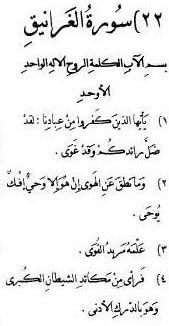 ٢٢) سورة الغرانيق
بسم الآب الكلمة الروح الإله الواحد
الأوحد
١) يأيها الذين كفروا من عبادنا : لقد
ضل رائدكم وقد غوى .
٢) وما نطق عن الهوى إن هو إلا وحي إفك
يوحى .
٣) علمه مريد القوى .
٤) فرأى من مكائد الشيطان الكبرى
وهو بالدرك الأدنى .